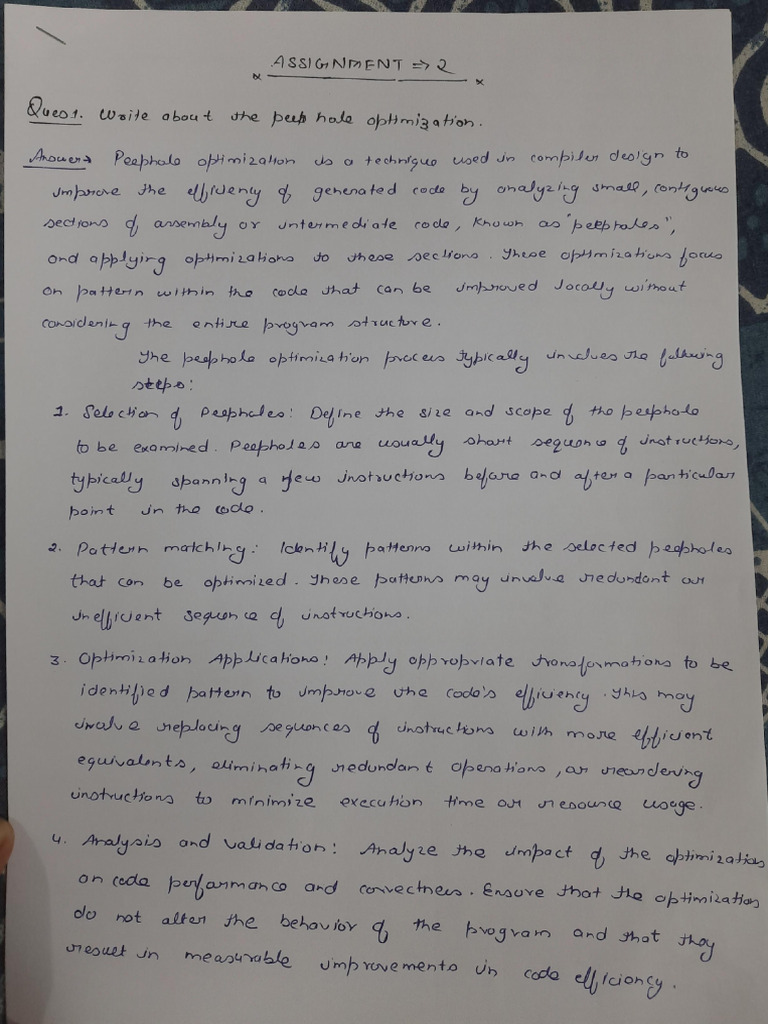 ASSIGNMENT ⇒ 2
Ques1. Write about the peep hole optimization.
Answer→ Peephole optimization is a technique used in compiler design to
improve the efficiency of generated code by analyzing small, contiguous
sections of assembly or intermediate code, known as "peepholes",
and applying optimizations to these sections. These optimizations focus
on pattern within the code that can be improved locally without
considering the entire program structure.
The peephole optimization process typically involves the following
steps:
1. Selection of Peepholes: Define the size and scope of the peephole
to be examined. Peepholes are usually short sequence of instructions,
typically spanning a few instructions before and after a particular
point in the code.
2. Pattern matching: Identify patterns within the selected peepholes
that can be optimized. These patterns may involve redundant or
inefficient sequence of instructions.
3. Optimization Applications: Apply appropriate transformations to be
identified pattern to improve the code's efficiency. This may
involve replacing sequences of instructions with more efficient
equivalents, eliminating redundant operations, or reordering
instructions to minimize execution time or resource usage.
4. Analysis and validation: Analyze the impact of the optimizations
on code performance and correctness. Ensure that the optimizations
do not alter the behavior of the program and that they
result in measurable improvements in code efficiency.